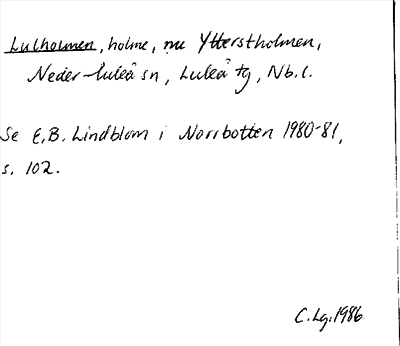 Lulholmen, holme, nu Ytterstholmen,
Neder-Luleå sn, Luleå tg, Nb. l.
Se E.B. Lindblom i Norrbotten 1980-81,
s. 102.
C. Lg. 1986